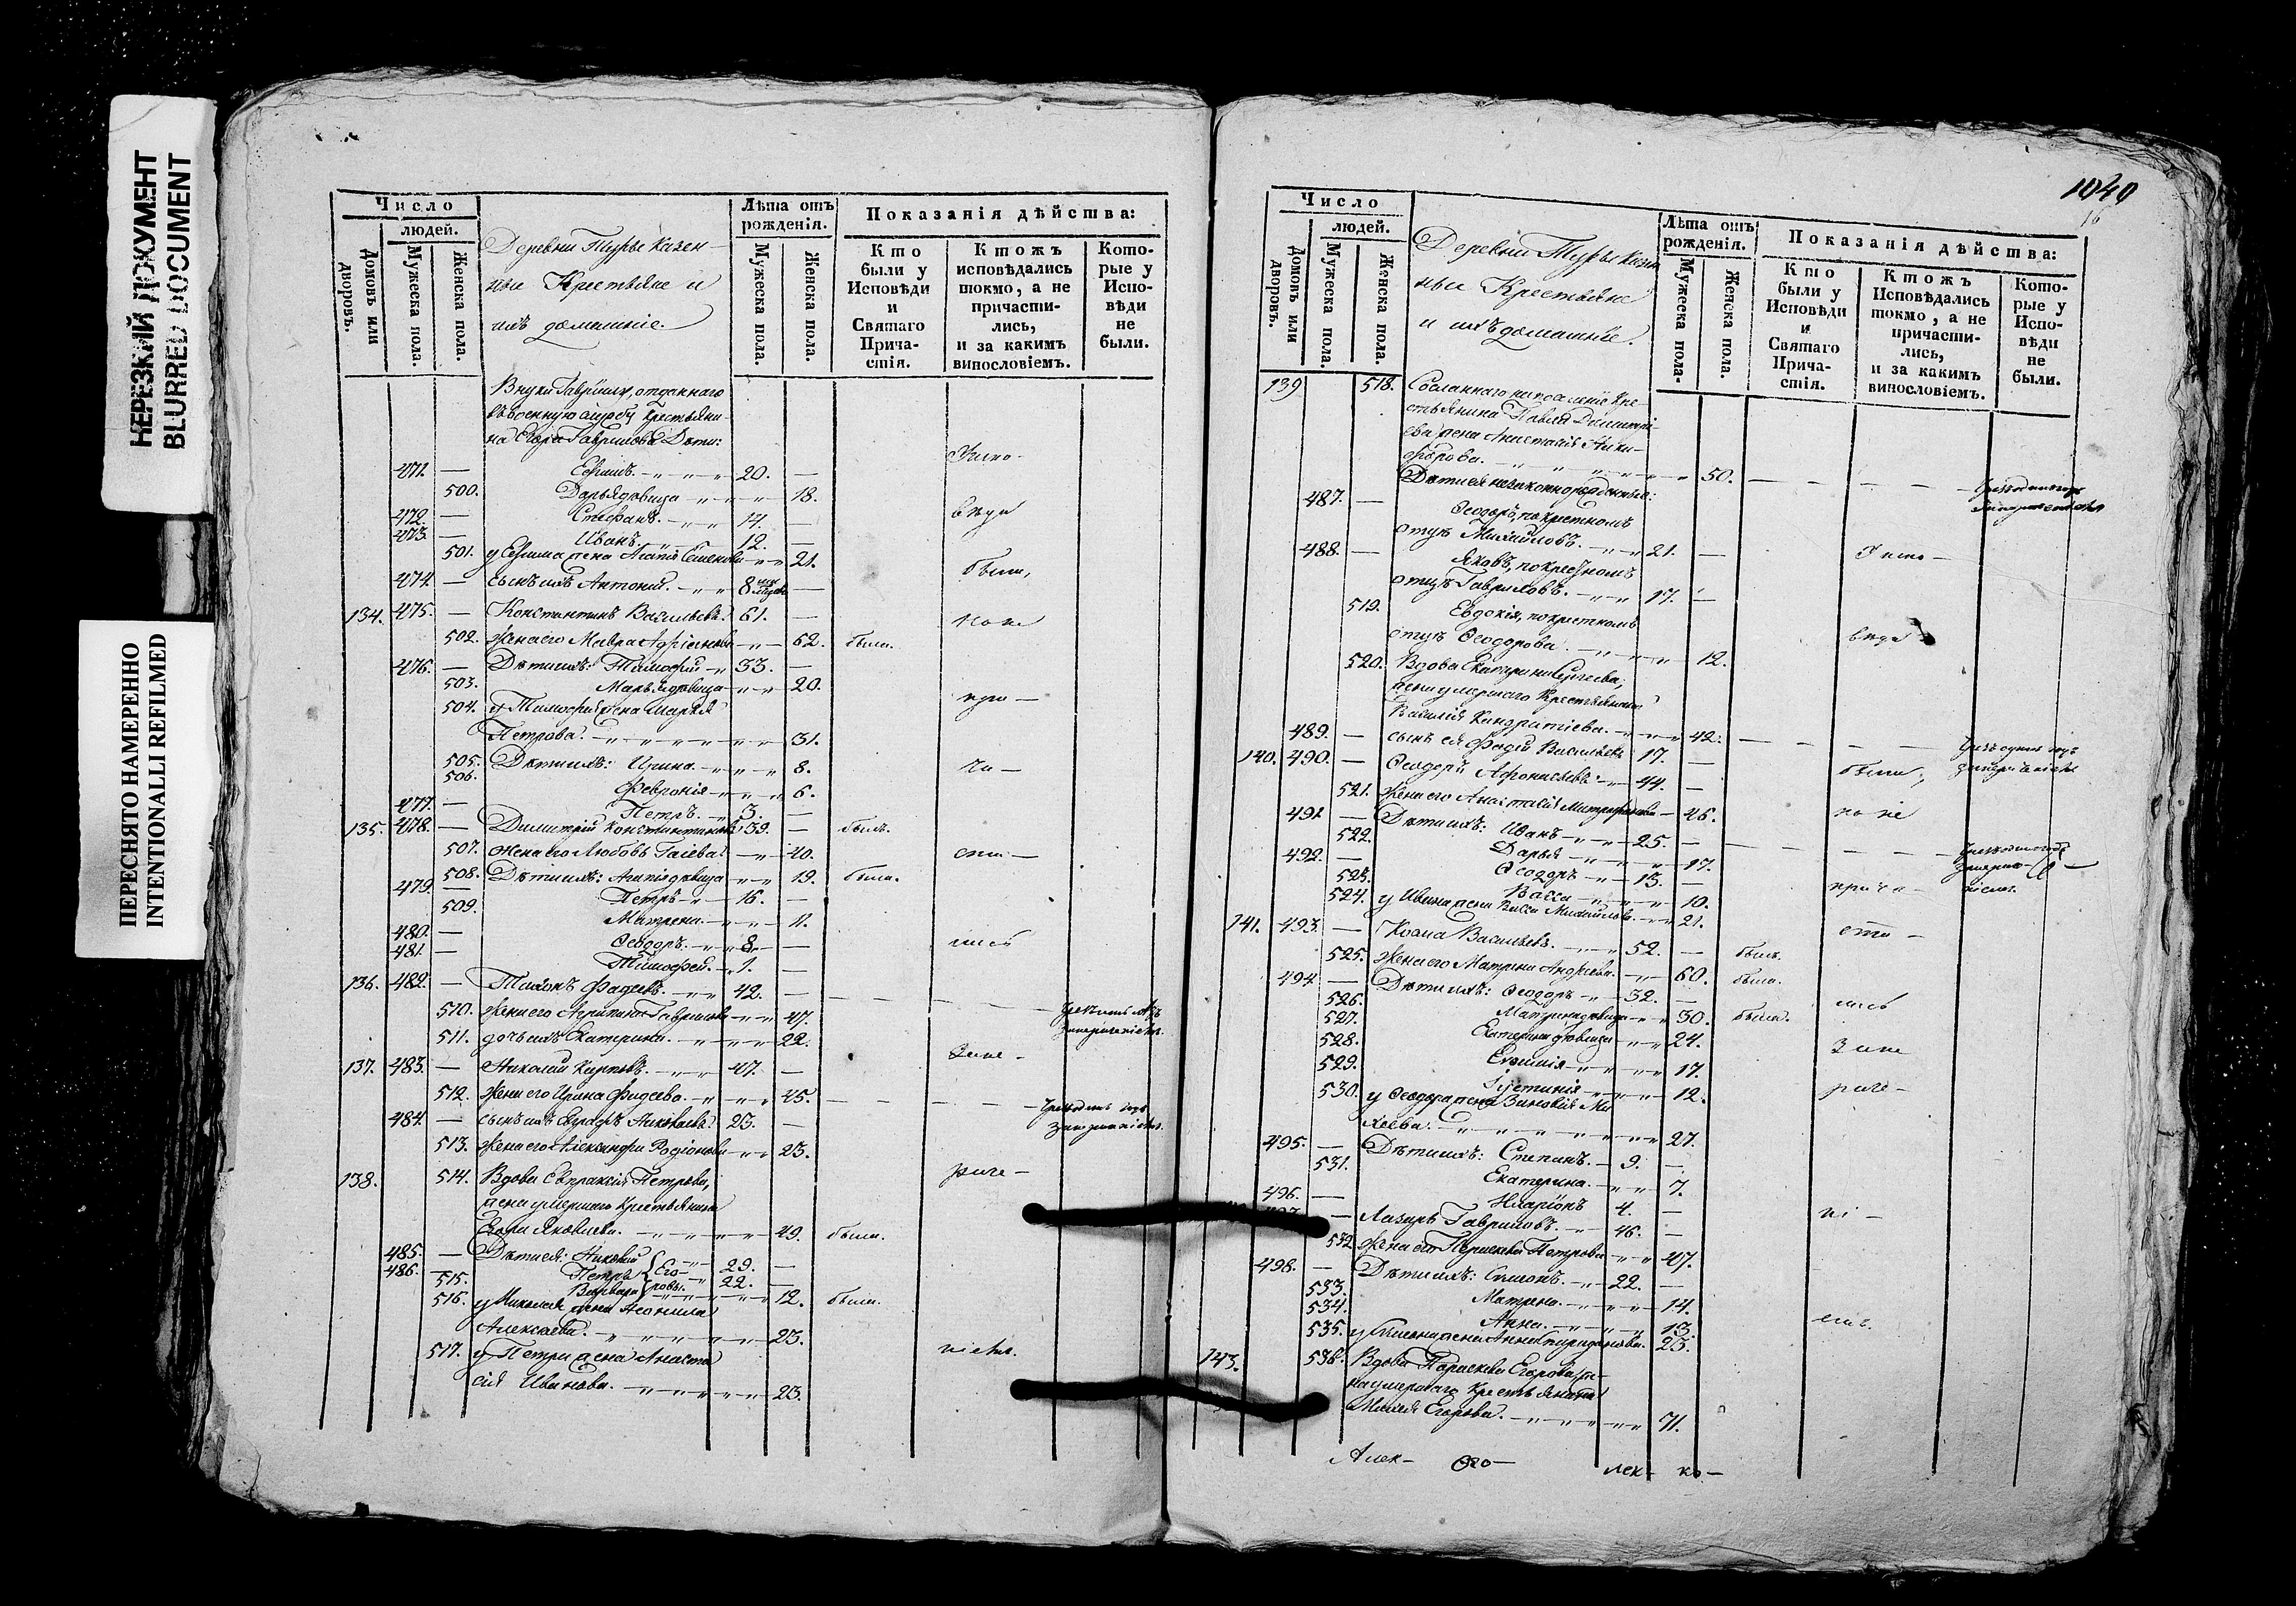 НЕРЕЗКИЙ ДОКУМЕНТ
BLURRED DOCUMENT
ПЕРЕСНЯТО НАМЕРЕННО
INTENTIONALLI REFILMED
Число
людей.
Домовъ или дворовъ.
Мужеска пола.
Женска пола.
Деревни Турье казен-
ные Крестьяне и
ихъ домашніе.
Лѣта отъ рожденія.
Мужеска пола.
Женска пола.
Показанія дѣйства:
Кто были у Исповѣди и Святаго Причастія.
Ктожъ исповѣдались токмо, а не причастились, и за какимъ винословіемъ.
Которые у Исповѣди не были.
Внуки Гаврилы, отданнаго
въ военную службу крестьяни-
на Егора Гаврилова Дѣти:
471. — Ефимъ. 20. —
500. Дарья дѣвица 18.
472. — Стефанъ. 14. —
473. — Иванъ. 12. —
501. у Ефима жена Агапія Семенова 21.
474. — сынъ ихъ Антоній. 8 —
134. 475. — Константинъ Васильевъ. 61. —
502. Жена его Мавра 62. была.
476. — Дѣти ихъ: Тимофей 33. —
503. Марья дѣвица 20.
504. у Тимофея жена Марья
Петрова. 31.
505. Дѣти ихъ: Ирина. 8.
506. Февронія 6.
477. — Петръ. 3. —
135. 478. — Димитрій Константиновъ 39. — былъ.
507. Жена его Любовь 40.
508. Дѣти ихъ: Агапія дѣвица 19. была.
479. — Петръ 16. —
509. Матрена. 11.
480. — Ѳеодоръ. 8. —
481. — Тимофей. 1. —
136. 482. — Фадеевъ. 42. —
510. Жена его Агрипина Гаврилова 47.
511. дочь ихъ Екатерина. 22.
137. 483. — Николай Карповъ. 47. —
512. Жена его Ирина Фадеева. 45.
484. — сынъ ихъ Евграфъ Николаевъ 23. —
513. Жена его Александра Родіонова 23.
138. 514. Вдова Евпраксія Петрова,
жена умершаго крестьянина
Егора Яковлева. 49. была.
485. — Дѣти ея: Николай 29. —
486. — Петръ 22. —
515. Варвара 12. была.
516. у Николая жена Леонила
Алексѣева. 23.
517. у Петра жена Анаста-
сія Иванова. 23.
1040
16
Число
людей.
Домовъ или дворовъ.
Мужеска пола.
Женска пола.
Деревни Турья казен
ные Крестьяне
и ихъ домашніе.
Лѣта отъ рожденія.
Мужеска пола.
Женска пола.
Показанія дѣйства:
Кто были у Исповѣди и Святаго Причастія.
Ктожъ Исповѣдались токмо, а не причастились, и за какимъ винословіемъ.
Которые у Исповѣди не были.
139 518. Сосланнаго на поселеніе кре-
стьянина Павла Димитрі-
ева жена Анастасія Ники-
форова. 50.
Дѣти ея незаконнорожденные:
487. — Ѳеодоръ, по крестному
отцу Михайловъ. 21. —
488. — Яковъ, по крестному
отцу Гавриловъ. 17. —
519. Евдокія, по крестному
отцу Ѳеодорова. 12.
520. Вдова Екатерина Сергеева,
жена умершаго Крестьянина
Василія Кондратіева. 42.
489. — сынъ ея Фадей Васильевъ 17. —
140. 490. — Ѳеодоръ Афонасьевъ 44. —
521. Жена его Анастасія Митрофанова 46.
491 — Дѣти ихъ: Иванъ 25. —
522. Дарья 17.
492. — Ѳеодоръ 13. —
523. Васса 10.
524. у Ивана жена Васса Михайлова 21.
141. 493. — Косма Васильевъ. 52. — былъ.
525. Жена его Матрена Андреева. 60. была.
494 — Дѣти ихъ: Ѳеодоръ 32. —
526. Матрена дѣвица 30. была.
527. Екатерина дѣвица 24.
528. 17.
529. Іустинія 12.
530. у Ѳеодора жена Зиновія Ми-
хеева. 27.
495. — Дѣти ихъ: Степанъ. 9. —
531. Екатерина. 7.
496. — Иларіонъ 4. —
— Лазарь Гавриловъ. 46. —
532 Жена его Параскева Петрова 47.
498. — Дѣти ихъ: Симеонъ. 22. —
533. Матрена. 14.
534. Анна. 13.
535. у Симеона жена Анна Спиридонова. 23.
143. 536. Вдова Параскева Егорова же-
на умершаго крестьянина
Михея Егорова. 71.